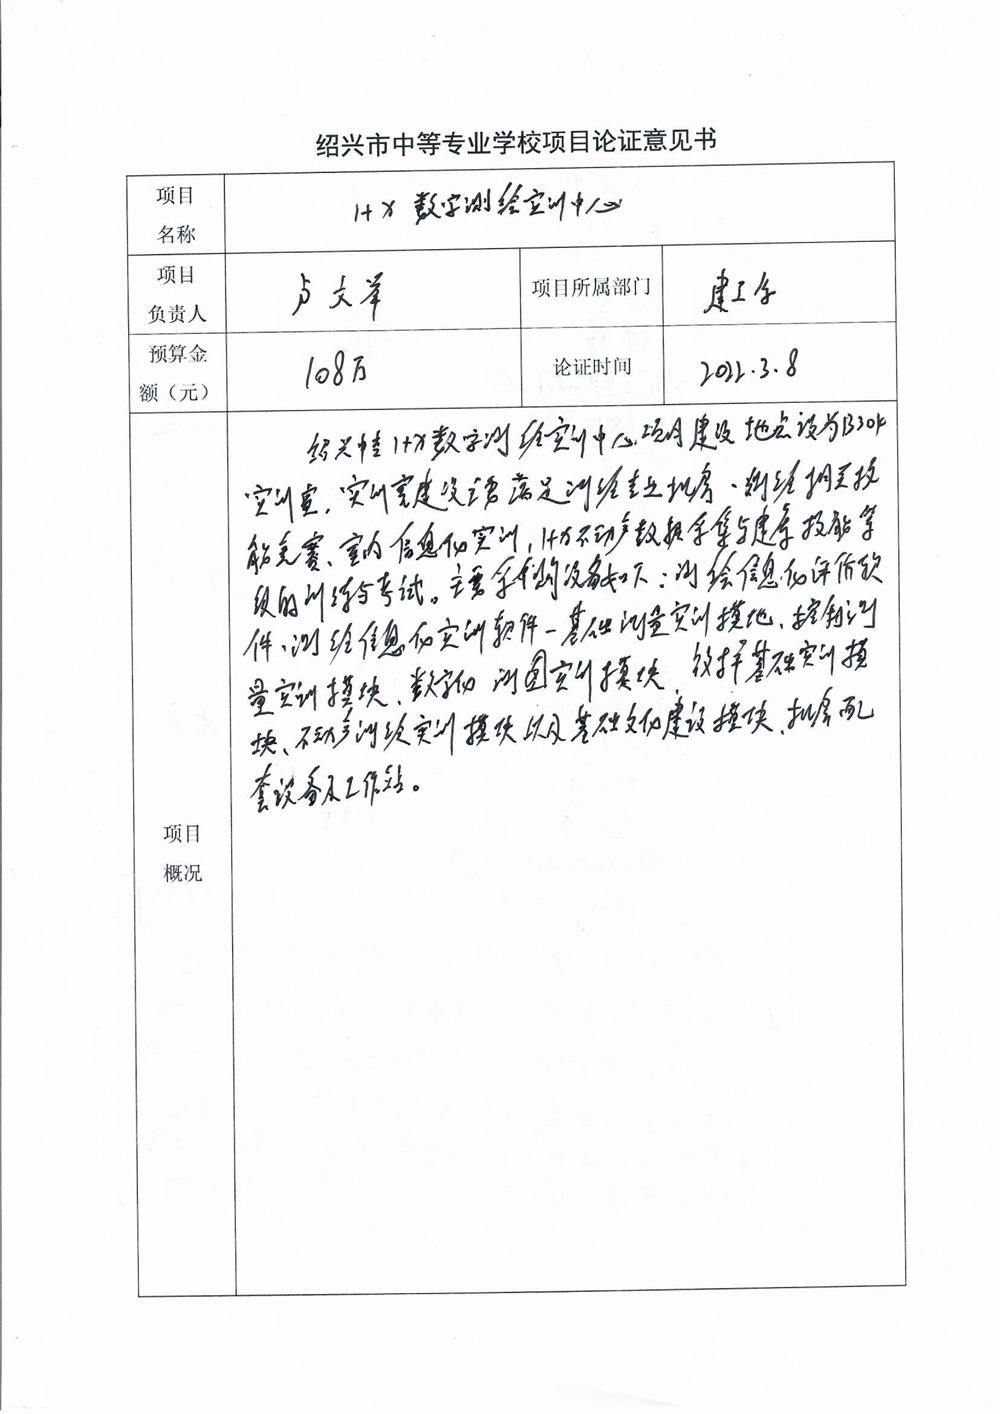 绍兴市中等专业学校项目论证意见书
项目
名称
1+X 数字测绘实训中心
项目
负责人
卢文华
项目所属部门
建工系
预算金
额（元）
108万
论证时间
2022.3.8
项目
概况
绍兴中专1+X数字测绘实训中心项目建设地点设为B304
实训室，实训室建设主要满足测绘专业教学、测绘相关技
能竞赛、室内信息化实训，1+X不动产数据采集与建库技能等
级的训练与考试。主要采购设备如下：测绘信息化评价软
件、测绘信息化实训软件－基础测量实训模块、控制测
量实训模块、数字化测图实训模块、放样基础实训模
块、不动产测绘实训模块以及基础文化建设模块、教学配
套设备及工作站。